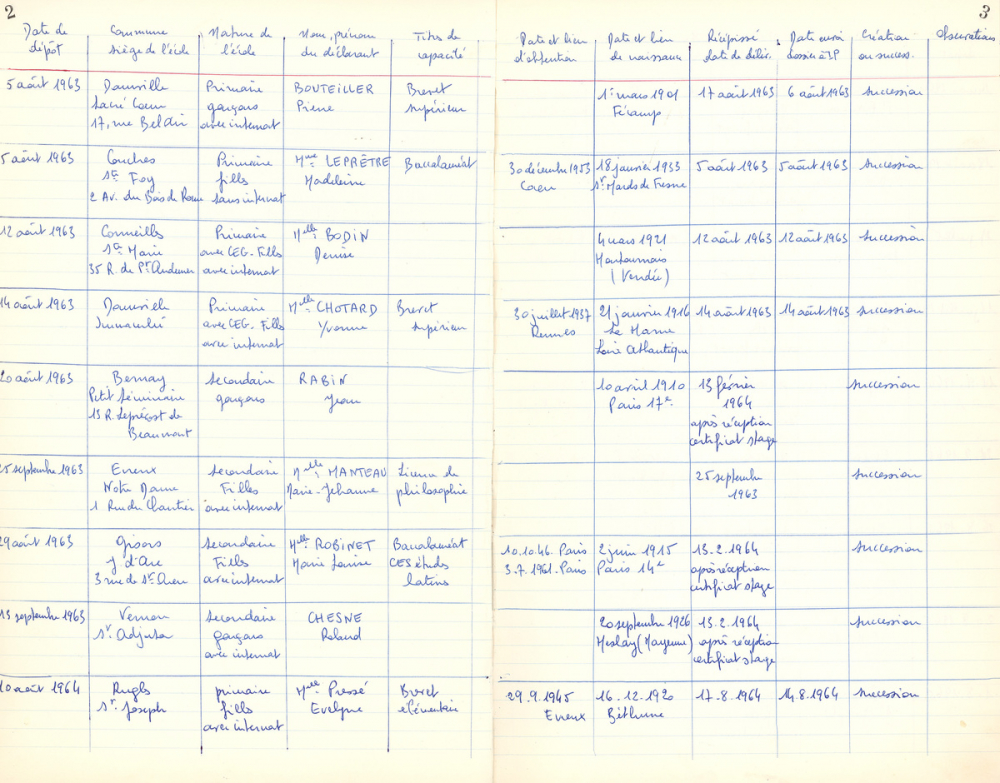 2
3
Date de dépôt
Commune siège de l'école
Nature de l'école
Nom, prénom du déclarant
Titres de capacité
Date et lieu d'obtention
Date et lieu de naissance
Récépissé date de déliv.
Date envoi dossier à IP
Création ou success.
Observations
5 août 1963
Damville
Primaire
BOUTEILLER
Brevet
1er mars 1901
17 août 1963
6 août 1963
succession
Sacré Coeur
garçons
Pierre
supérieur
Fécamp
17, rue Beldin
avec internat
5 août 1963
Conches
Primaire
Mme LEPRÊTRE
Baccalauréat
30 décembre 1953
18 janvier 1933
5 août 1963
5 août 1963
succession
Ste Foy
filles
Madeleine
Caen
St Mards de Fresne
2 Av. du Bois de Rome
sans internat
12 août 1963
Cormeilles
Primaire
Melle BODIN
4 mars 1921
12 août 1963
12 août 1963
succession
Ste Marie
avec CEG. Filles
Denise
35 R. de Pt Audemer
avec internat
(Vendée)
14 août 1963
Damville
Primaire
Melle CHOTARD
Brevet
30 juillet 1937
21 janvier 1916
14 août 1963
14 août 1963
succession
Immaculée
avec CEG. Filles
Yvonne
supérieur
Rennes
avec internat
Loire Atlantique
20 août 1963
Bernay
secondaire
RABIN
10 avril 1910
13 février
succession
Petit Séminaire
garçons
Jean
Paris 17e
1964
15 R. Leprévost de
après réception
Beaumont
certificat stage
25 septembre 1963
Evreux
secondaire
Melle MANTEAU
Licence de
25 septembre
succession
Notre Dame
Filles
Marie-Jehanne
philosophie
1963
1 Rue du Chantier
avec internat
29 août 1963
Gisors
secondaire
Melle ROBINET
Baccalauréat
10.10.46. Paris
2 juin 1915
13-2.1964
succession
J d'Arc
Filles
Marie Louise
CES études
3.7.1961. Paris
Paris 14e
après réception
3 rue de St Ouen
avec internat
latines
certificat stage
13 septembre 1963
Vernon
secondaire
CHESNE
20 septembre 1926
13.2.1964
succession
St Adjutor
garçons
Roland
Meslay (Mayenne)
après réception
avec internat
certificat stage
10 août 1964
Rugles
primaire
Melle Pressé
Brevet
29.9.1945
16.12.1920
17.8.1964
14.8.1964
succession
St Joseph
filles
Evelyne
élémentaire
Evreux
Béthune
avec internat